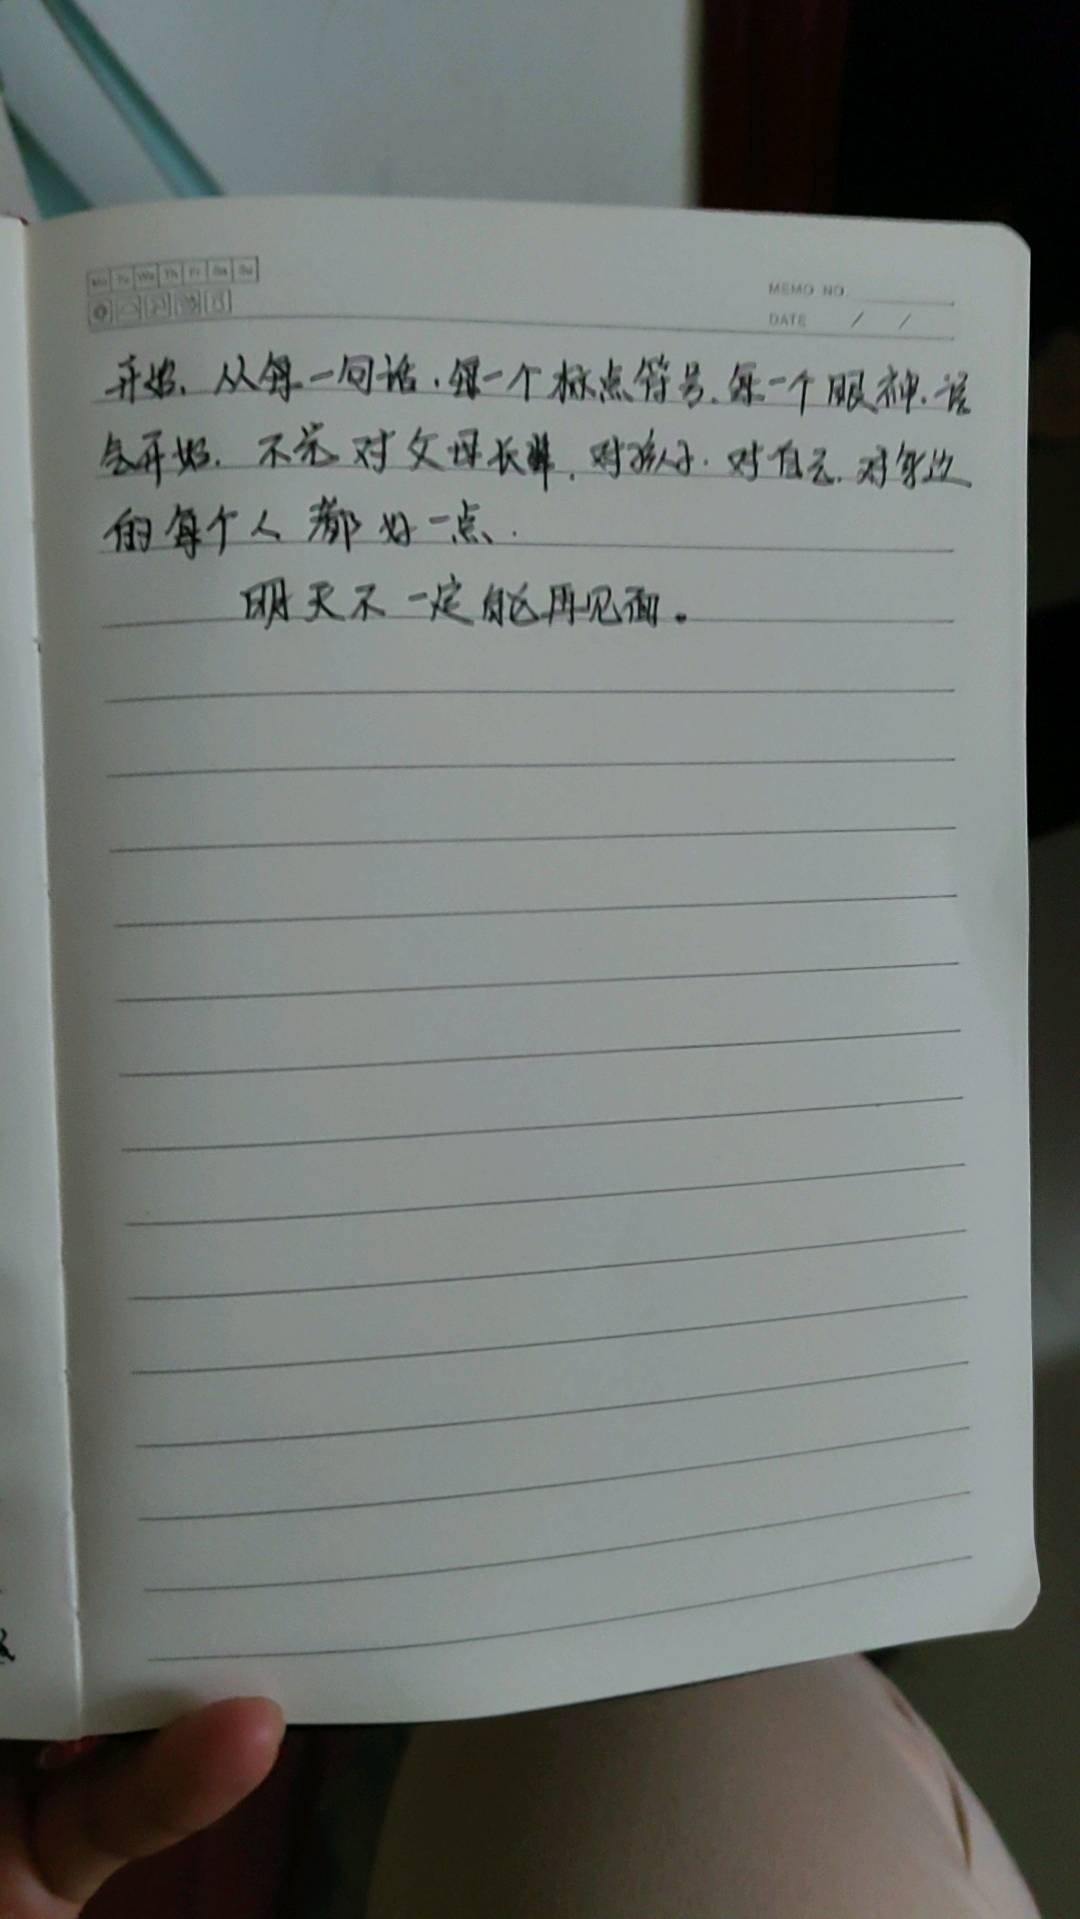 Mo Tu We Th Fr Sa Su
MEMO NO.
DATE / /
开始. 从每一句话. 每一个标点符号. 每一个眼神. 语
气开始. 不光对父母长辈. 对孩子. 对自己. 对身边
的每个人都好一点.
明天不一定能再见面。